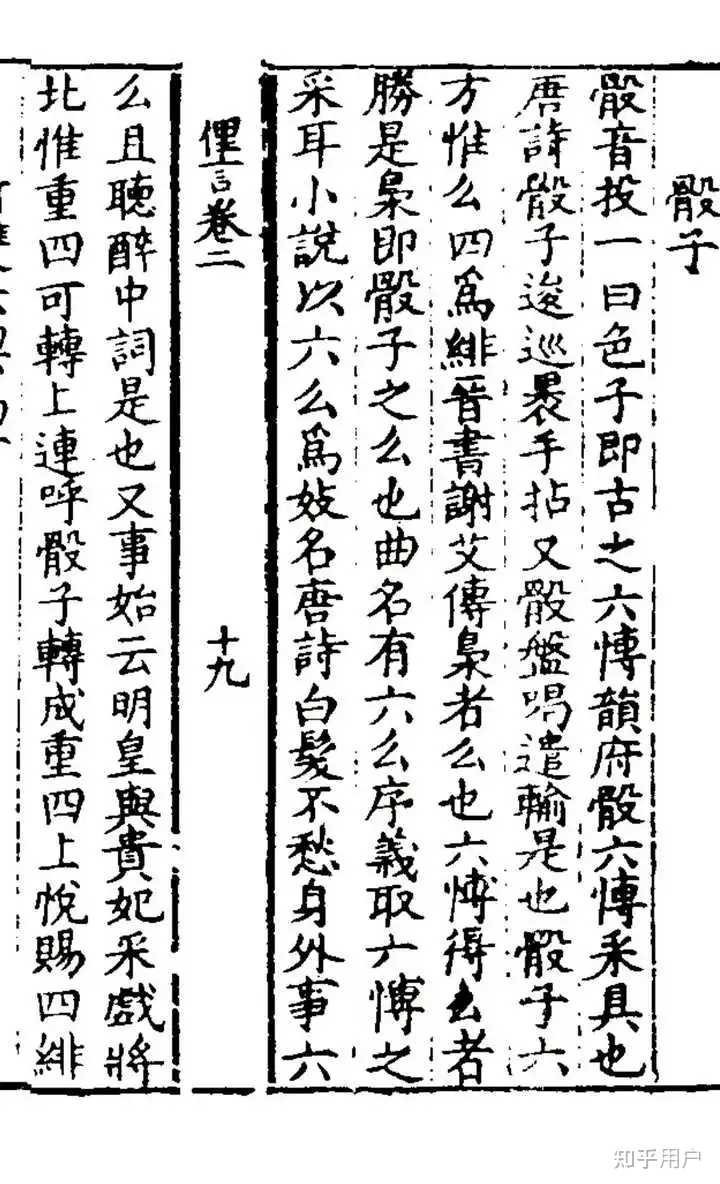 骰子
骰音投一曰色子即古之六愽韻府骰六愽采具也
唐詩骰子逡巡褁手拈又骰盤喝遣輸是也骰子六
方惟么四爲緋晉書謝艾傳梟者么也六愽得么者
勝是梟即骰子之么也曲名有六么序義取六愽之
采耳小說以六么爲妓名唐詩白髮不愁身外事六
俚言卷二
十九
么且聴醉中詞是也又事始云明皇與貴妃采戲將
北惟重四可轉上連呼骰子轉成重四上悅賜四緋
知乎用户